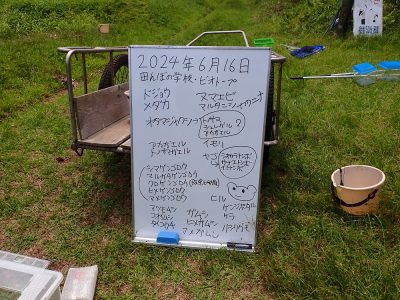 2024年6月16日
田んぼの学校・ビオトープ
ドジョウ ヌマエビ
メダカ マルタニシ
オタマジャクシ トノサマ
シュレーゲル
アカガエル ?
アカガエル イモリ
トノサマガエル ヤゴ
シオカラトンボ
イトトンボ
シマゲンゴロウ
マルガタゲンゴロウ
クロゲンゴロウ
ヒメゲンゴロウ
マメゲンゴロウ ヒル
マツモムシ ガムシ ケラ
コオイムシ ヒメガムシ
タイコウチ マメガムシ